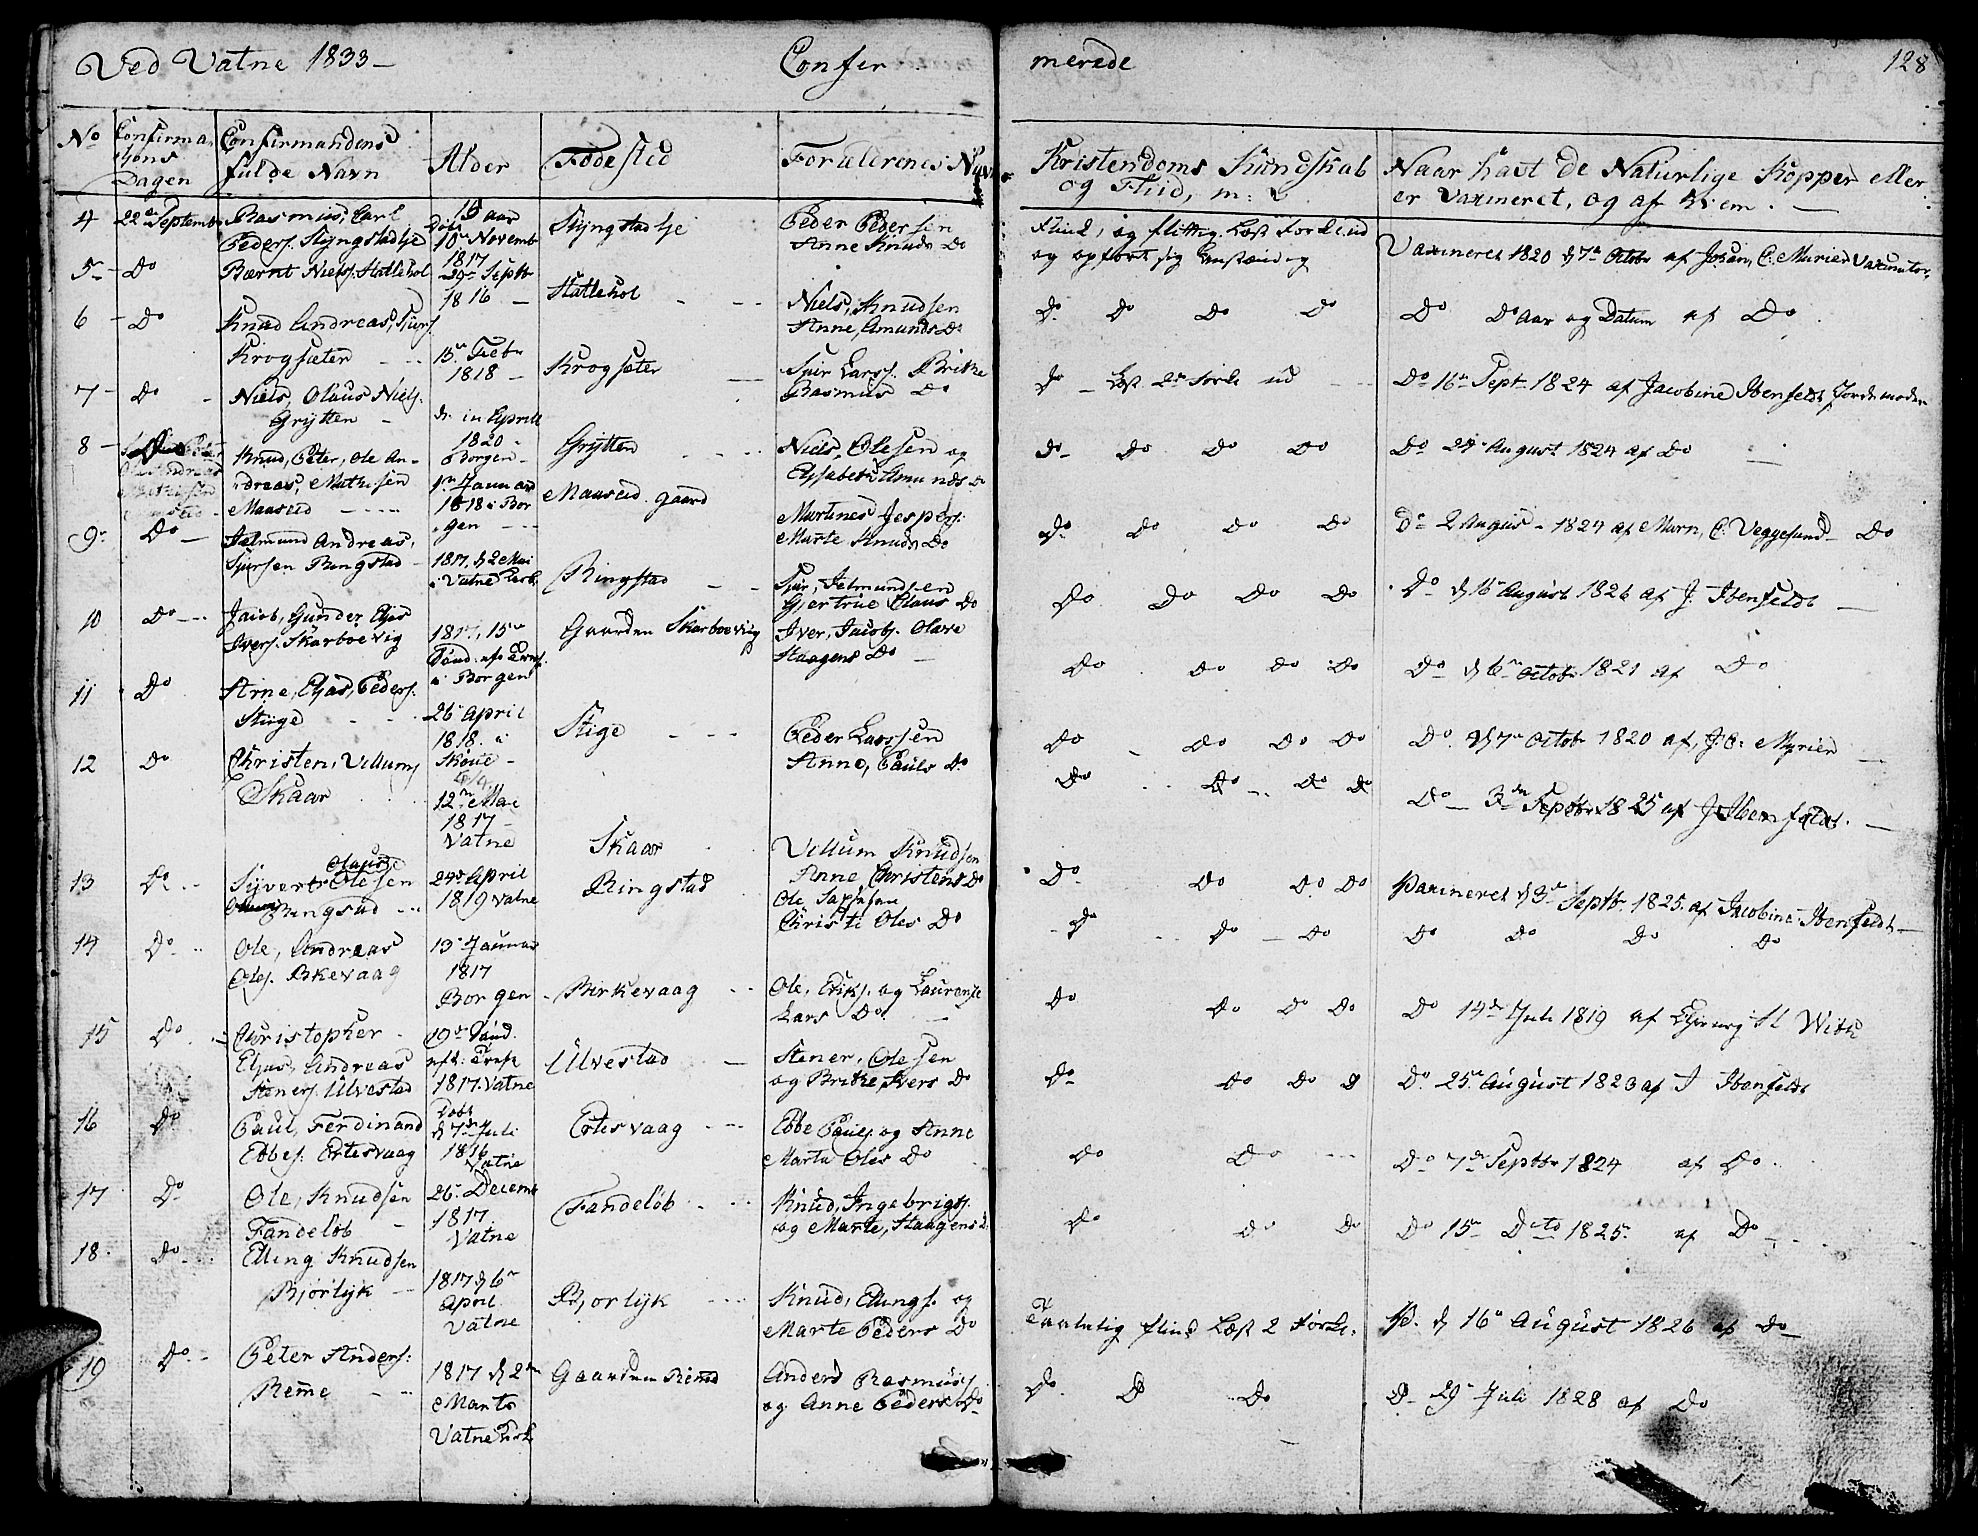 Ved Vatne 1833 –
Confer
merede
128
No
Confirma,
tions
Dagen
Confirmandens
fulde Navn
Alder
Fødested
Forældrenes Navn
Kristendoms Kundskab
og Fliid, m:
Naar havt de Naturlige Kopper eller
er Vaxineret, og af hvem. –
4
22de Septembr
Rasmus, Carl
Peders. Slyngstadlje
15 aar
Døbt
10de Novemb
1817
Slyngstadlje
Peder Pedersen
Anne Knuds Do
Flink, og flittig. Læst Forkl. ud
og opført sig Anstændig
Vaxineret 1820 d 7de Octobr af Johan, C. Myrien Vaxinator,
5 –
Do
Bærnt Niels. Hatlehol
29de Septbr
1816 –
Hatlehol
Niels, Knudsen
Anne, Amunds Do
Do Do Do Do
Do Do Aar og Datum af Do
6 –
Do
Knud Andreas, Siurs.
Krogsæter
15de Febr
1818 –
Krogsæter
Siur Larss. Brithe
Rasmus Do
Do – Læst 2de Forkl ud
Do 16de Sept 1824 af Jacobine Ibenfeldt Jordemoder
7 –
Do
Niels, Olaus Niels.
Grytten
d. 1n April
1820
Borgen
Grytten
Niels, Olesen og
Elisabeth Amunds Do
Do Do Do Do
Do 24 August 1824 af Do
8 –
Knud, Peter, Ole An-
dreas, Mathisen
Maaseid
1n Januar
1818 i Bor
gen
Maaseid gaard
Martines Jespers.
Marte Knuds Do
Do Do Do Do
Do 2 August 1824 af Marn, C. Veggesund Do
9
Do
Jetmund Andreas,
Sjursen Ringstad
1817, d 2 Mai
i Vatne Kirk.
Ringstad
Sjur, Jetmundsen
Gjertrue Olaus Do
Do Do Do Do
Do d 16 August 1826 af J. Ibenfeldt
10
Do
Jacob, Gunder, Elias
Ivers. Skarboevig
1817, 15de
Sønd. eft Tref.
i Borgen
Gaarden Skarboevig
Iver, Jacobs. Olave
Haagens Do
Do Do Do Do
Do d 6te Octobr 1821 af Do
11
Do
Arne, Elias, Peders.
Stige
26 April
1818. i
Skoue
Stige
Peder Larssen
Anne, Pauls Do
Do Do Do Do
Do d 7de Octobr 1820 af, J. C. Myrien
12
Do
Christen, Villums.
Skaar
12te Mai
1817
Vatne
Skaar
Villum Knudsen
Anne Christens Do
Do Do Do Do
Do 3de Septbr 1825 af J Ibenfeldt.
13
Do
Olaus
Syvert Olesen
Ringstad
24de April
1819 Vatne
Ringstad
Ole
Christi Oles Do
Do Do Do Do
Vaxineret d 3de Septbr. 1825. af Jacobine Ibenfeldt
Do Do Do
Do Do Do Do
14
Do
Ole, Andreas
Oles. Brkevaag
13 Januar
1817
Borgen
Birkevaag
Ole, Eriks. og Laurense
Lars Do
Do Do Do Do
Do 14de Juli 1819 af Chirurg Sl With
15
Do
Christopher
Elias, Andreas
Steners. Ulvestad
19de Sønd.
eft: Tref
1817. Vatne
Ulvestad
Stener, Olesen
og Brithe, Ivers Do
Do Do Do
Do 25de August 1823 af J Ibenfeldt
16
Do
Paul, Ferdinand
Ebbes. Ertesvaag
Døbt
d 7de Juli
1816
Vatne
Ertesvaag
Ebbe Pauls. og Anne
Marta Oles Do
Do Do
Do 7de Septbr 1824 af Do
17
Do
Ole, Knudsen
Fandeløb
26. Decemb
1817
Vatne
Fandeløb
Knud, Ingebrigts.
og Marte, Haagens
Do Do Do
Do 15de Dito 1825. af Do
18.
Do
Elling Knudsen
Bjørlyk
1817 d 6te
April
Vatne
Bjorlyk
Knud, Ellings. og
Marte Peders Do
Taalelig flink Læst 2 Forkl.
V. d 16de August 1826 af Do
19
Do
Peter Anders:
Reme
1817 d 2de
Marts
Vatne
Gaarden Reme
Anders Rasmuss.
og Anne Peders Do
Do Do Do
D. 29 Juli 1828 af Do